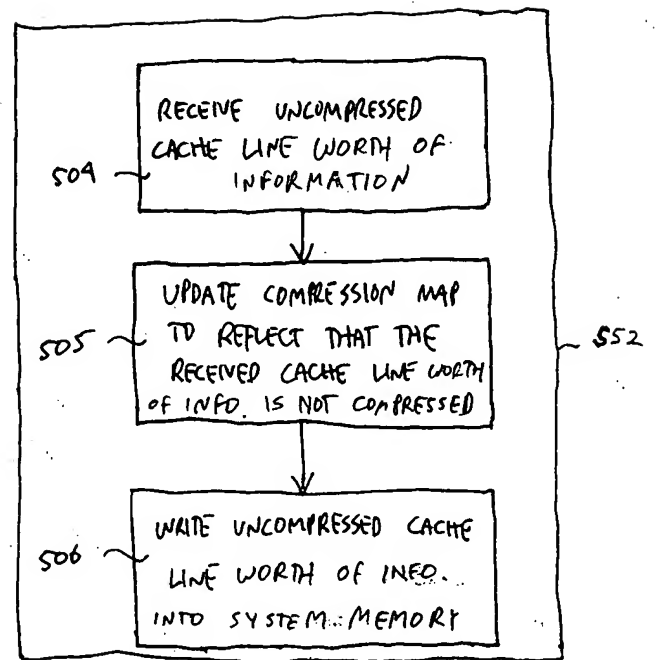 RECEIVE UNCOMPRESSED
CACHE LINE WORTH OF
INFORMATION
504
UPDATE COMPRESSION MAP
TO REFLECT THAT THE
RECEIVED CACHE LINE WORTH
OF INFO. IS NOT COMPRESSED
505
552
WRITE UNCOMPRESSED CACHE
LINE WORTH OF INFO.
INTO SYSTEM MEMORY
506